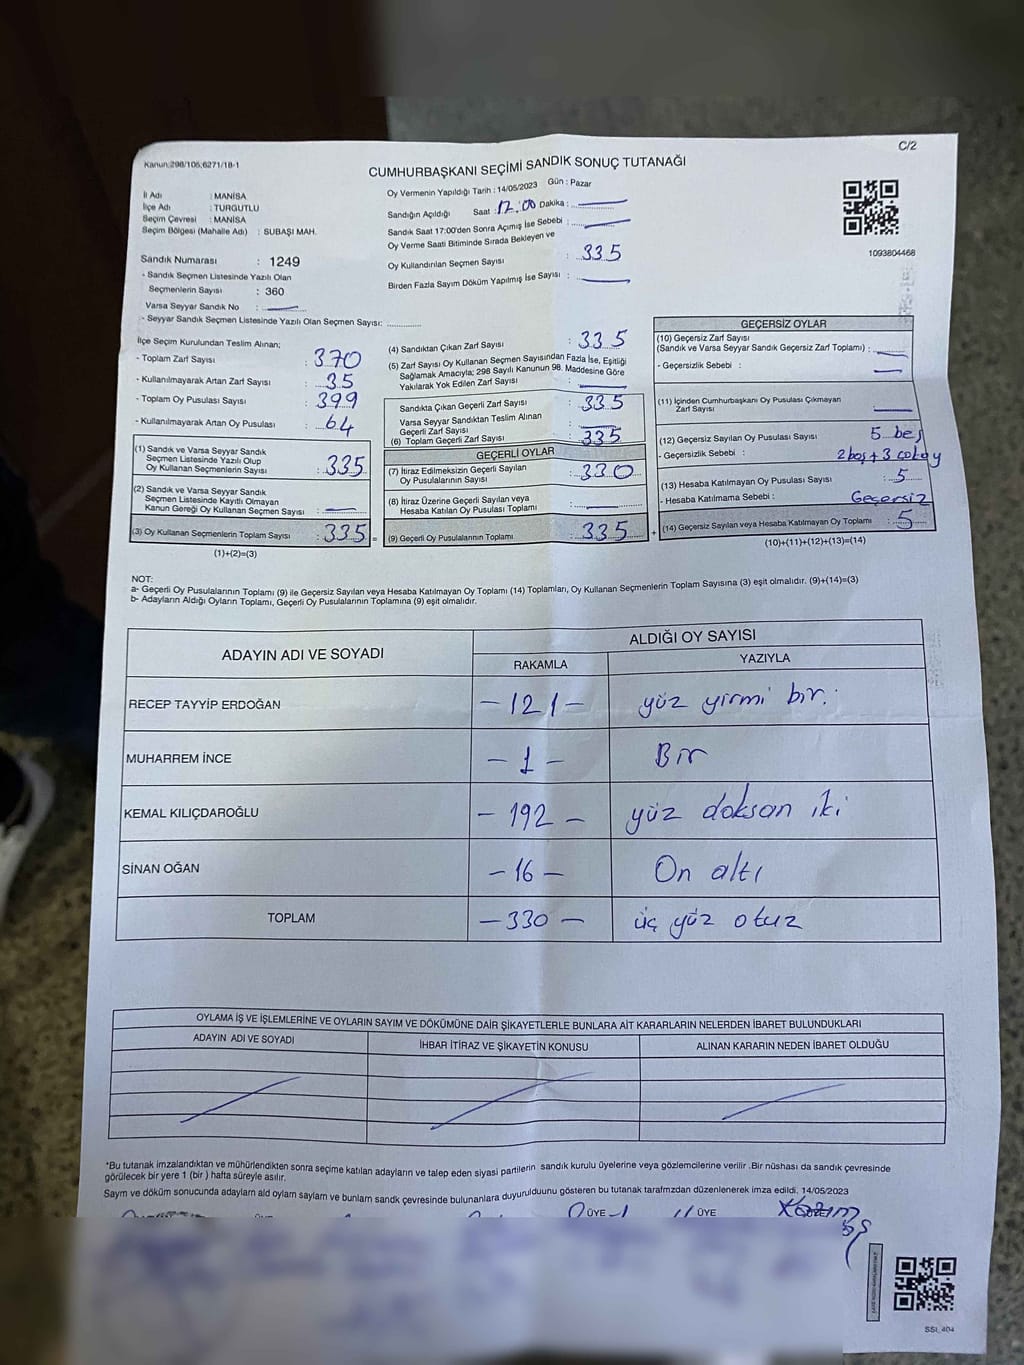 Kanun;298/105,6271/18-1
CUMHURBAŞKANI SEÇİMİ SANDIK SONUÇ TUTANAĞI
C/2
İl Adı : MANİSA
İlçe Adı : TURGUTLU
Seçim Çevresi : MANİSA
Seçim Bölgesi (Mahalle Adı) : SUBAŞI MAH.
Sandık Numarası : 1249
- Sandık Seçmen Listesinde Yazılı Olan
Seçmenlerin Sayısı : 360
Varsa Seyyar Sandık No :
- Seyyar Sandık Seçmen Listesinde Yazılı Olan Seçmen Sayısı:
Oy Vermenin Yapıldığı Tarih : 14/05/2023 Gün : Pazar
Sandığın Açıldığı Saat : 17.00 Dakika :
Sandık Saat 17:00'den Sonra Açımış İse Sebebi :
Oy Verme Saati Bitiminde Sırada Bekleyen ve
Oy Kullandırılan Seçmen Sayısı : 335
Birden Fazla Sayım Döküm Yapılmış İse Sayısı :
1093804468
İlçe Seçim Kurulundan Teslim Alınan;
- Toplam Zarf Sayısı : 370
- Kullanılmayarak Artan Zarf Sayısı : 35
- Toplam Oy Pusulası Sayısı : 399
- Kullanılmayarak Artan Oy Pusulası : 64
(1) Sandık ve Varsa Seyyar Sandık
Seçmen Listesinde Yazılı Olup
Oy Kullanan Seçmenlerin Sayısı : 335
(2) Sandık ve Varsa Seyyar Sandık
Seçmen Listesinde Kayıtlı Olmayan
Kanun Gereği Oy Kullanan Seçmen Sayısı :
(3) Oy Kullanan Seçmenlerin Toplam Sayısı : 335 =
(1)+(2)=(3)
(4) Sandıktan Çıkan Zarf Sayısı : 335
(5) Zarf Sayısı Oy Kullanan Seçmen Sayısından Fazla İse, Eşitliği
Sağlamak Amacıyla; 298 Sayılı Kanunun 98. Maddesine Göre
Yakılarak Yok Edilen Zarf Sayısı :
Sandıkta Çıkan Geçerli Zarf Sayısı : 335
Varsa Seyyar Sandıktan Teslim Alınan
Geçerli Zarf Sayısı :
(6) Toplam Geçerli Zarf Sayısı : 335
GEÇERLİ OYLAR
(7) İtiraz Edilmeksizin Geçerli Sayılan
Oy Pusulalarının Sayısı : 330
(8) İtiraz Üzerine Geçerli Sayılan veya
Hesaba Katılan Oy Pusulası Toplamı :
(9) Geçerli Oy Pusulalarının Toplamı : 335 +
GEÇERSİZ OYLAR
(10) Geçersiz Zarf Sayısı
(Sandık ve Varsa Seyyar Sandık Geçersiz Zarf Toplamı) :
- Geçersizlik Sebebi :
(11) İçinden Cumhurbaşkanı Oy Pusulası Çıkmayan
Zarf Sayısı
(12) Geçersiz Sayılan Oy Pusulası Sayısı 5 beş
- Geçersizlik Sebebi : 2 boş + 3 çoklay
(13) Hesaba Katılmayan Oy Pusulası Sayısı : 5
- Hesaba Katılmama Sebebi : Geçersiz
(14) Geçersiz Sayılan veya Hesaba Katılmayan Oy Toplamı : 5
(10)+(11)+(12)+(13)=(14)
NOT:
a- Geçerli Oy Pusulalarının Toplamı (9) ile Geçersiz Sayılan veya Hesaba Katılmayan Oy Toplamı (14) Toplamları, Oy Kullanan Seçmenlerin Toplam Sayısına (3) eşit olmalıdır. (9)+(14)=(3)
b- Adayların Aldığı Oyların Toplamı, Geçerli Oy Pusulalarının Toplamına (9) eşit olmalıdır.
ADAYIN ADI VE SOYADI
ALDIĞI OY SAYISI
RAKAMLA YAZIYLA
RECEP TAYYİP ERDOĞAN - 121 - yüz yirmi bir.
MUHARREM İNCE - 1 - Bir
KEMAL KILIÇDAROĞLU - 192 - yüz doksan iki
SİNAN OĞAN - 16 - On altı
TOPLAM - 330 - üç yüz otuz
OYLAMA İŞ VE İŞLEMLERİNE VE OYLARIN SAYIM VE DÖKÜMÜNE DAİR ŞİKAYETLERLE BUNLARA AİT KARARLARIN NELERDEN İBARET BULUNDUKLARI
ADAYIN ADI VE SOYADI İHBAR İTİRAZ VE ŞİKAYETİN KONUSU ALINAN KARARIN NEDEN İBARET OLDUĞU
*Bu tutanak imzalandıktan ve mühürlendikten sonra seçime katılan adayların ve talep eden siyasi partilerin sandık kurulu üyelerine veya gözlemcilerine verilir .Bir nüshası da sandık çevresinde
görülecek bir yere 1 (bir ) hafta süreyle asılır.
Sayım ve döküm sonucunda adayların ald oylam saylam ve bunlam sandk çevresinde bulunanlara duyurulduunu gösteren bu tutanak tarafmzdan düzenlenerek imza edildi. 14/05/2023
ÜYE ÜYE
SSI_404